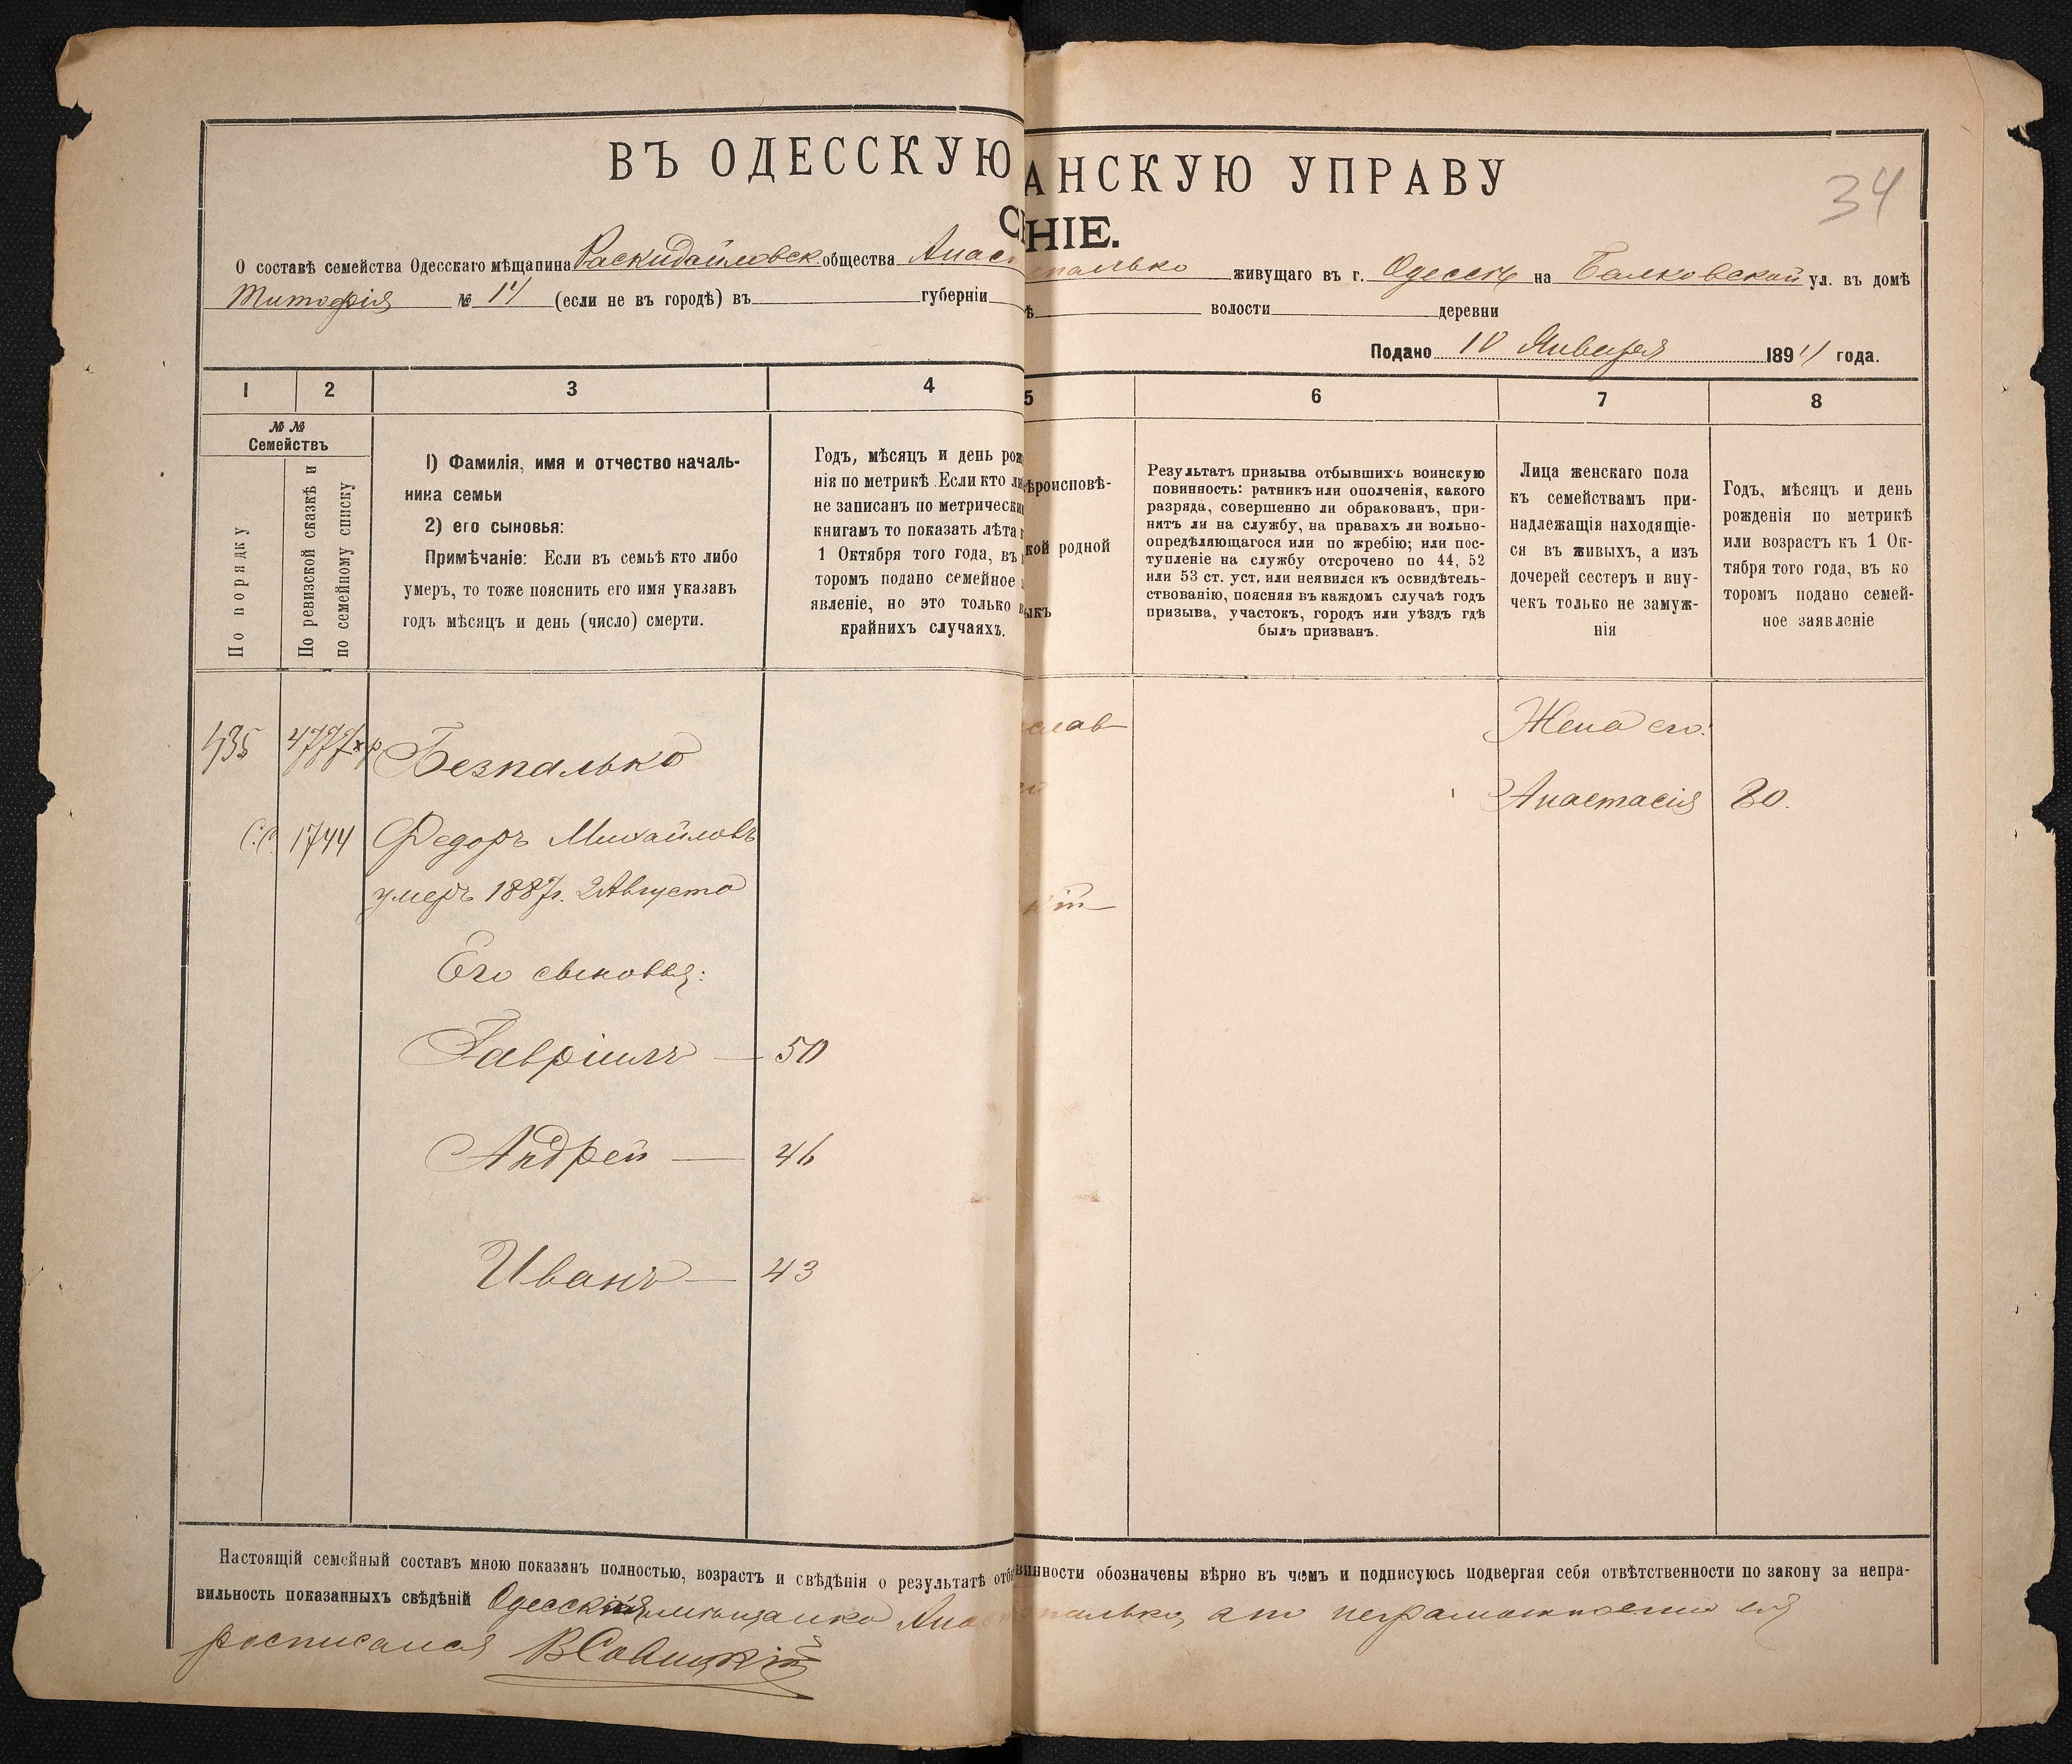 ВЪ ОДЕССКУЮ АНСКУЮ УПРАВУ
34
НІЕ.
О составѣ семейства Одесскаго мѣщанина Раскидайловск. общества Анаст палько живущаго въ г. Одессѣ на Балковской ул. въ домѣ
Тимофія № 14 (если не въ городѣ) въ губерніи ѣ волости деревни
Подано 10 Января 1894 года.
1 2 3 4 5 6 7 8
№ №
Семействъ
По порядку
По ревизской сказкѣ и
по семейному списку
1) Фамилія, имя и отчество началь-
ника семьи
2) его сыновья:
Примѣчаніе: Если въ семьѣ кто либо
умеръ, то тоже пояснить его имя указавъ
годъ мѣсяцъ и день (число) смерти.
Годъ, мѣсяцъ и день рож
нія по метрикѣ. Если кто ли
не записанъ по метрически
книгамъ то показать лѣта
1 Октября того года, въ
торомъ подано семейное з
явленіе, но это только в
крайнихъ случаяхъ.
ѣроисповѣ-
кой родной
ыкъ
Результатъ призыва отбывшихъ воинскую
повинность: ратникъ или ополченія, какого
разряда, совершенно ли обракованъ, при-
нятъ ли на службу, на правахъ ли вольно-
опредѣляющагося или по жребію; или пос-
тупленіе на службу отсрочено по 44, 52
или 53 ст. уст. или неявился къ освидѣтель-
ствованію, поясняя въ каждомъ случаѣ годъ
призыва, участокъ, городъ или уѣздъ гдѣ
былъ призванъ.
Лица женскаго пола
къ семействамъ при-
надлежащія находящіе-
ся въ живыхъ, а изъ
дочерей сестеръ и вну-
чекъ только не замуж-
нія
Годъ, мѣсяцъ и день
рожденія по метрикѣ
или возрастъ къ 1 Ок-
тября того года, въ ко
торомъ подано семей-
ное заявленіе
435 4777 Безпалько слав Жена его:
Анастасія 80.
1744 Федоръ Михайловъ
умеръ 1887г. 2 Августа
Его сыновья:
Гавріилъ — 50
Андрей — 46
Иванъ — 43
Настоящій семейный составъ мною показанъ полностью, возрастъ и свѣдѣнія о результатѣ отб винности обозначены вѣрно въ чемъ и подписуюсь подвергая себя отвѣтственности по закону за непра-
вильность показанныхъ свѣдѣній Одесская мѣщанка Анас палько, а по неграмотности ея
росписался В Савицкій